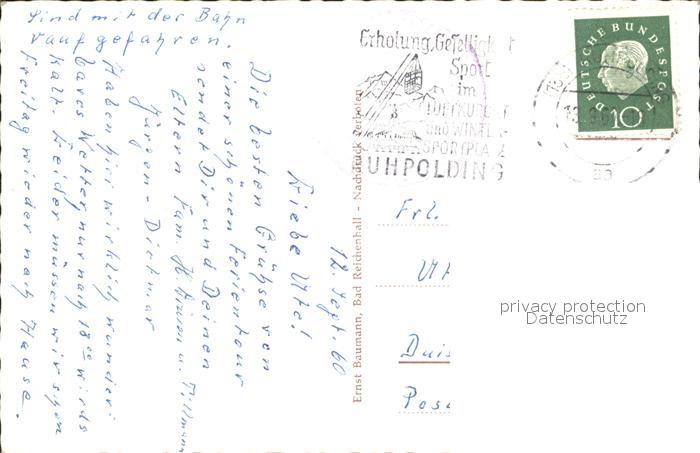 Sind mit der Bahn
rauf gefahren.
12. Sept. 60
Liebe Ute!
Die besten Grüße von
einer schönen Ferientour
sendet Dir und Deinen
Eltern Fam. H. u. Tillmann
Jürgen - Dietmar
Haben hier wirklich wunder-
bares Wetter, nur nach 18 00 wirds
kalt. Leider müssen wir schon
Freitag wieder nach Hause.
Ernst Baumann, Bad Reichenhall - Nachdruck verboten
Erholung, Geselligkeit
Sport
im
LUFTKURORT
UND WINTER-
SPORTPLATZ
RUHPOLDING
DEUTSCHE BUNDESPOST
10
Frl.
Ut
Duis
Pose
privacy protection
Datenschutz